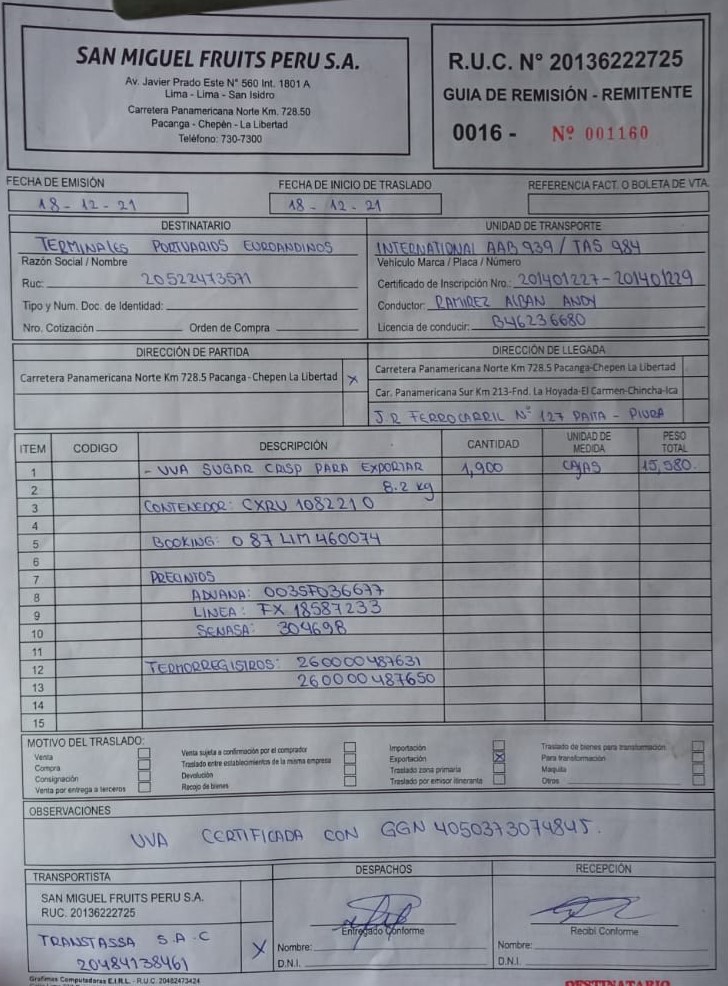 SAN MIGUEL FRUITS PERU S.A.
Av. Javier Prado Este N° 560 Int. 1801 A
Lima - Lima - San Isidro
Carretera Panamericana Norte Km. 728.50
Pacanga - Chepén - La Libertad
Teléfono: 730-7300
R.U.C. N° 20136222725
GUIA DE REMISIÓN - REMITENTE
0016 - Nº 001160
FECHA DE EMISIÓN
18-12-21
FECHA DE INICIO DE TRASLADO
18-12-21
REFERENCIA FACT. O BOLETA DE VTA.
DESTINATARIO
TERMINALES PORTUARIOS EUROANDINOS
Razón Social / Nombre
Ruc: 20522473571
Tipo y Num. Doc. de Identidad:
Nro. Cotización Orden de Compra
UNIDAD DE TRANSPORTE
INTERNATIONAL AAB 939 / TAS 984
Vehículo Marca / Placa / Número
Certificado de Inscripción Nro.: 201401227-201401229
Conductor: RAMIREZ ALBAN ANDY
Licencia de conducir: B46236680
DIRECCIÓN DE PARTIDA
Carretera Panamericana Norte Km 728.5 Pacanga-Chepen La Libertad X
DIRECCIÓN DE LLEGADA
Carretera Panamericana Norte Km 728.5 Pacanga-Chepen La Libertad
Car. Panamericana Sur Km 213-Fnd. La Hoyada-El Carmen-Chincha-Ica
J.R FERROCARRIL N° 127 PAITA - PIURA
ITEM CODIGO DESCRIPCIÓN CANTIDAD UNIDAD DE MEDIDA PESO TOTAL
1 - UVA SUGAR CRISP PARA EXPORTAR 1,900 CAJAS 15,580.
2 8.2 kg
3 CONTENEDOR: CXRU 1082210
4
5 BOOKING: 087LIM460074
6
7 PRECINTOS
8 ADUANA: 0035F036677
9 LINEA: FX 18587233
10 SENASA: 304698
11
12 TERMORREGISTROS: 260000487631
13 260000487650
14
15
MOTIVO DEL TRASLADO:
Venta
Compra
Consignación
Venta por entrega a terceros
Venta sujeta a confirmación por el comprador
Traslado entre establecimientos de la misma empresa
Devolución
Recojo de bienes
Importación
Exportación X
Traslado zona primaria
Traslado por emisor itinerante
Traslado de bienes para transformación
Para transformación
Maquila
Otros
OBSERVACIONES
UVA CERTIFICADA CON GGN 4050373074845.
TRANSPORTISTA
SAN MIGUEL FRUITS PERU S.A.
RUC. 20136222725
TRANSTASSA S.A.C
20484138461 X
DESPACHOS
Entregado Conforme
Nombre:
D.N.I.
RECEPCIÓN
Recibí Conforme
Nombre:
D.N.I.
Grafimos Computadoras E.I.R.L. - R.U.C. 20482473424
DESTINATARIO